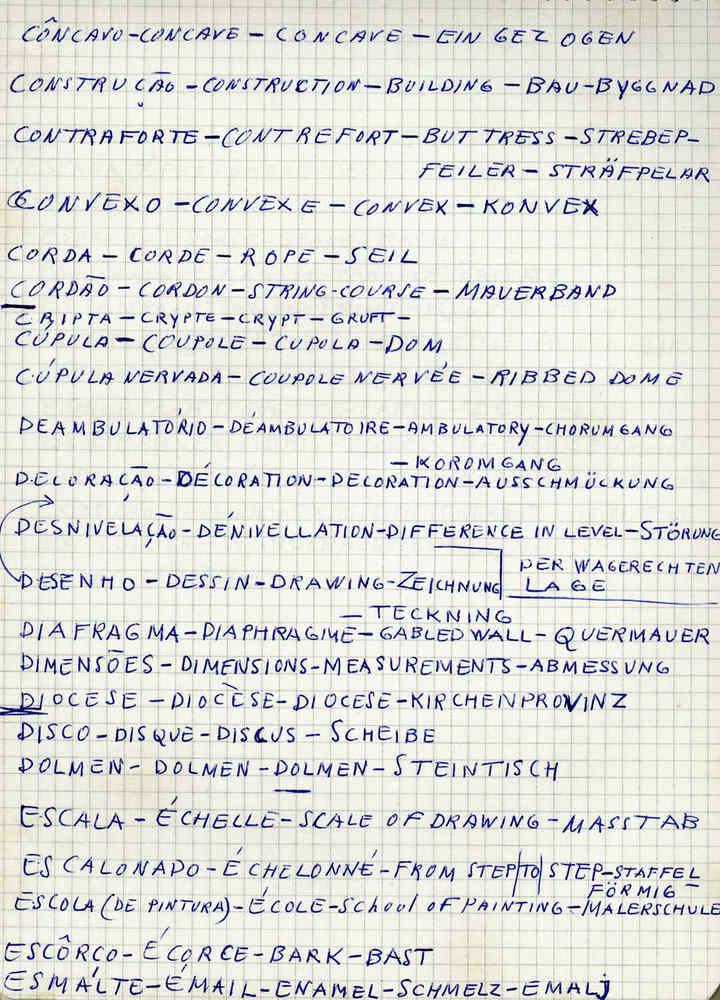 CÔNCAVO-CONCAVE - CONCAVE - EINGEZOGEN
CONSTRUÇÃO - CONSTRUCTION - BUILDING - BAU - BYGGNAD
CONTRAFORTE - CONTREFORT - BUTTRESS - STREBEP-
FEILER - STRÄFPELAR
CONVEXO - CONVEXE - CONVEX - KONVEX
CORDA - CORDE - ROPE - SEIL
CORDÃO - CORDON - STRING-COURSE - MAUERBAND
CRIPTA - CRYPTE - CRYPT - GRUFT -
CÚPULA - COUPOLE - CUPOLA - DOM
CÚPULA NERVADA - COUPOLE NERVÉE - RIBBED DOME
DEAMBULATÓRIO - DÉAMBULATOIRE - AMBULATORY - CHORUMGANG
- KOROMGANG
DECORAÇÃO - DÉCORATION - DECORATION - AUSSCHMÜCKUNG
DESNIVELAÇÃO - DÉNIVELLATION - DIFFERENCE IN LEVEL - STÖRUNG
DER WAGERECHTEN
DESENHO - DESSIN - DRAWING - ZEICHNUNG LAGE
- TECKNING
DIAFRAGMA - DIAPHRAGME - GABLED WALL - QUERMAUER
DIMENSÕES - DIMENSIONS - MEASUREMENTS - ABMESSUNG
DIOCESE - DIOCÈSE - DIOCESE - KIRCHENPROVINZ
DISCO - DISQUE - DISCUS - SCHEIBE
DOLMEN - DOLMEN - DOLMEN - STEINTISCH
ESCALA - ÉCHELLE - SCALE OF DRAWING - MASSTAB
ESCALONADO - ÉCHELONNÉ - FROM STEP TO STEP - STAFFEL
FÖRMIG -
ESCOLA (DE PINTURA) - ÉCOLE - SCHOOL OF PAINTING - MALERSCHULE
ESCÔRÇO - ÉCORCE - BARK - BAST
ESMALTE - ÉMAIL - ENAMEL - SCHMELZ - EMALJ